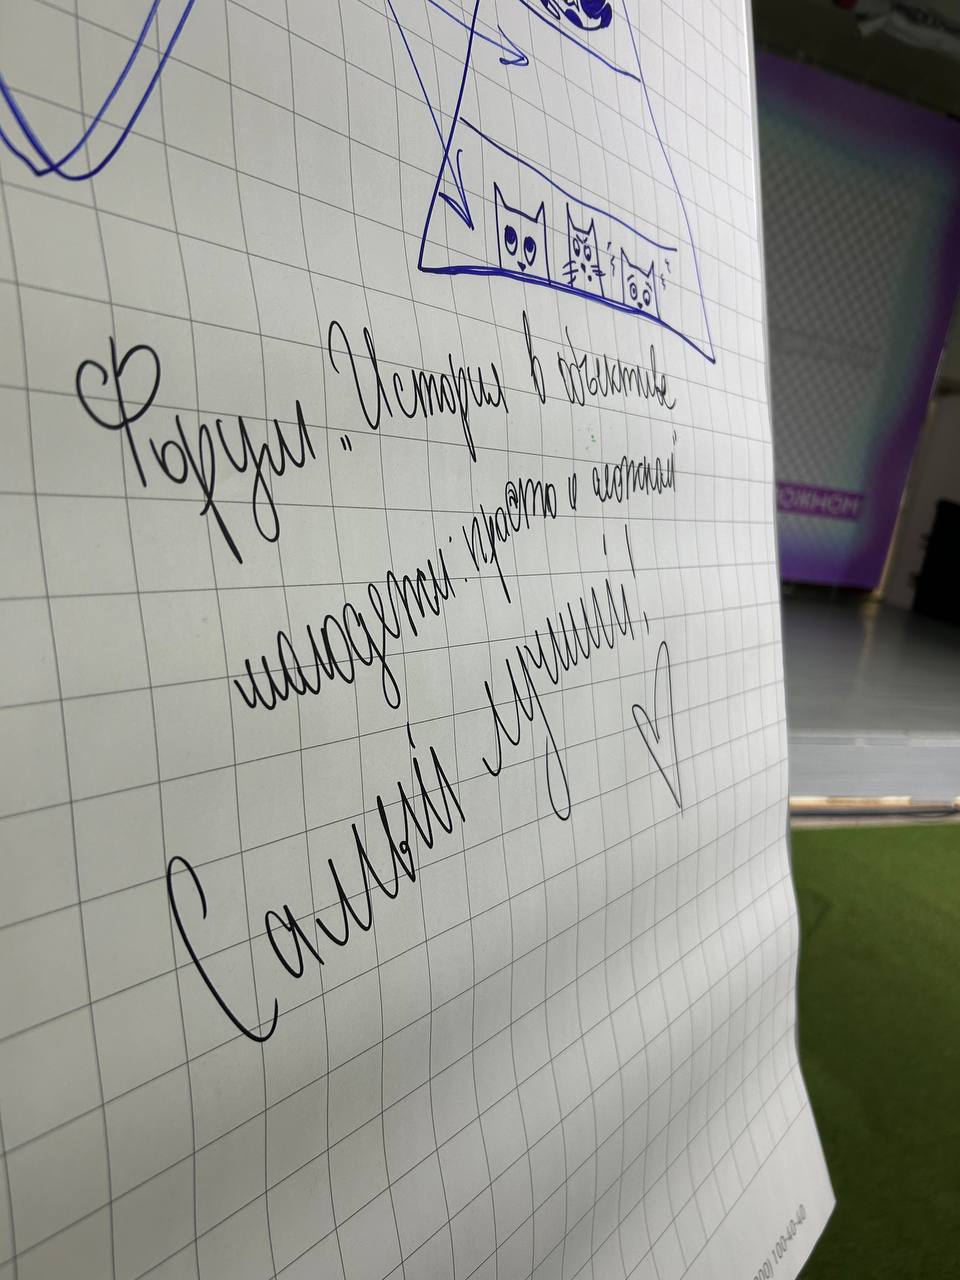 Форум „История в объективе
молодежи: просто о сложном"
Самый лучший!
ЛОЖНОМ
00) 100-40-40